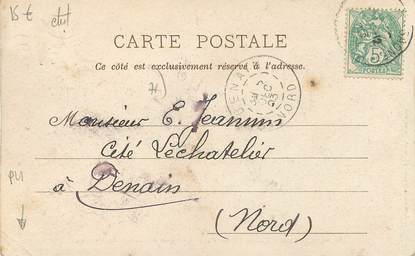 15 €
CARTE POSTALE
Ce côté est exclusivement réservé à l'adresse.
Monsieur E. Jeannin
Cité Lèchatelier
à Denain
(Nord)
DENAIN
NORD
5
POSTES